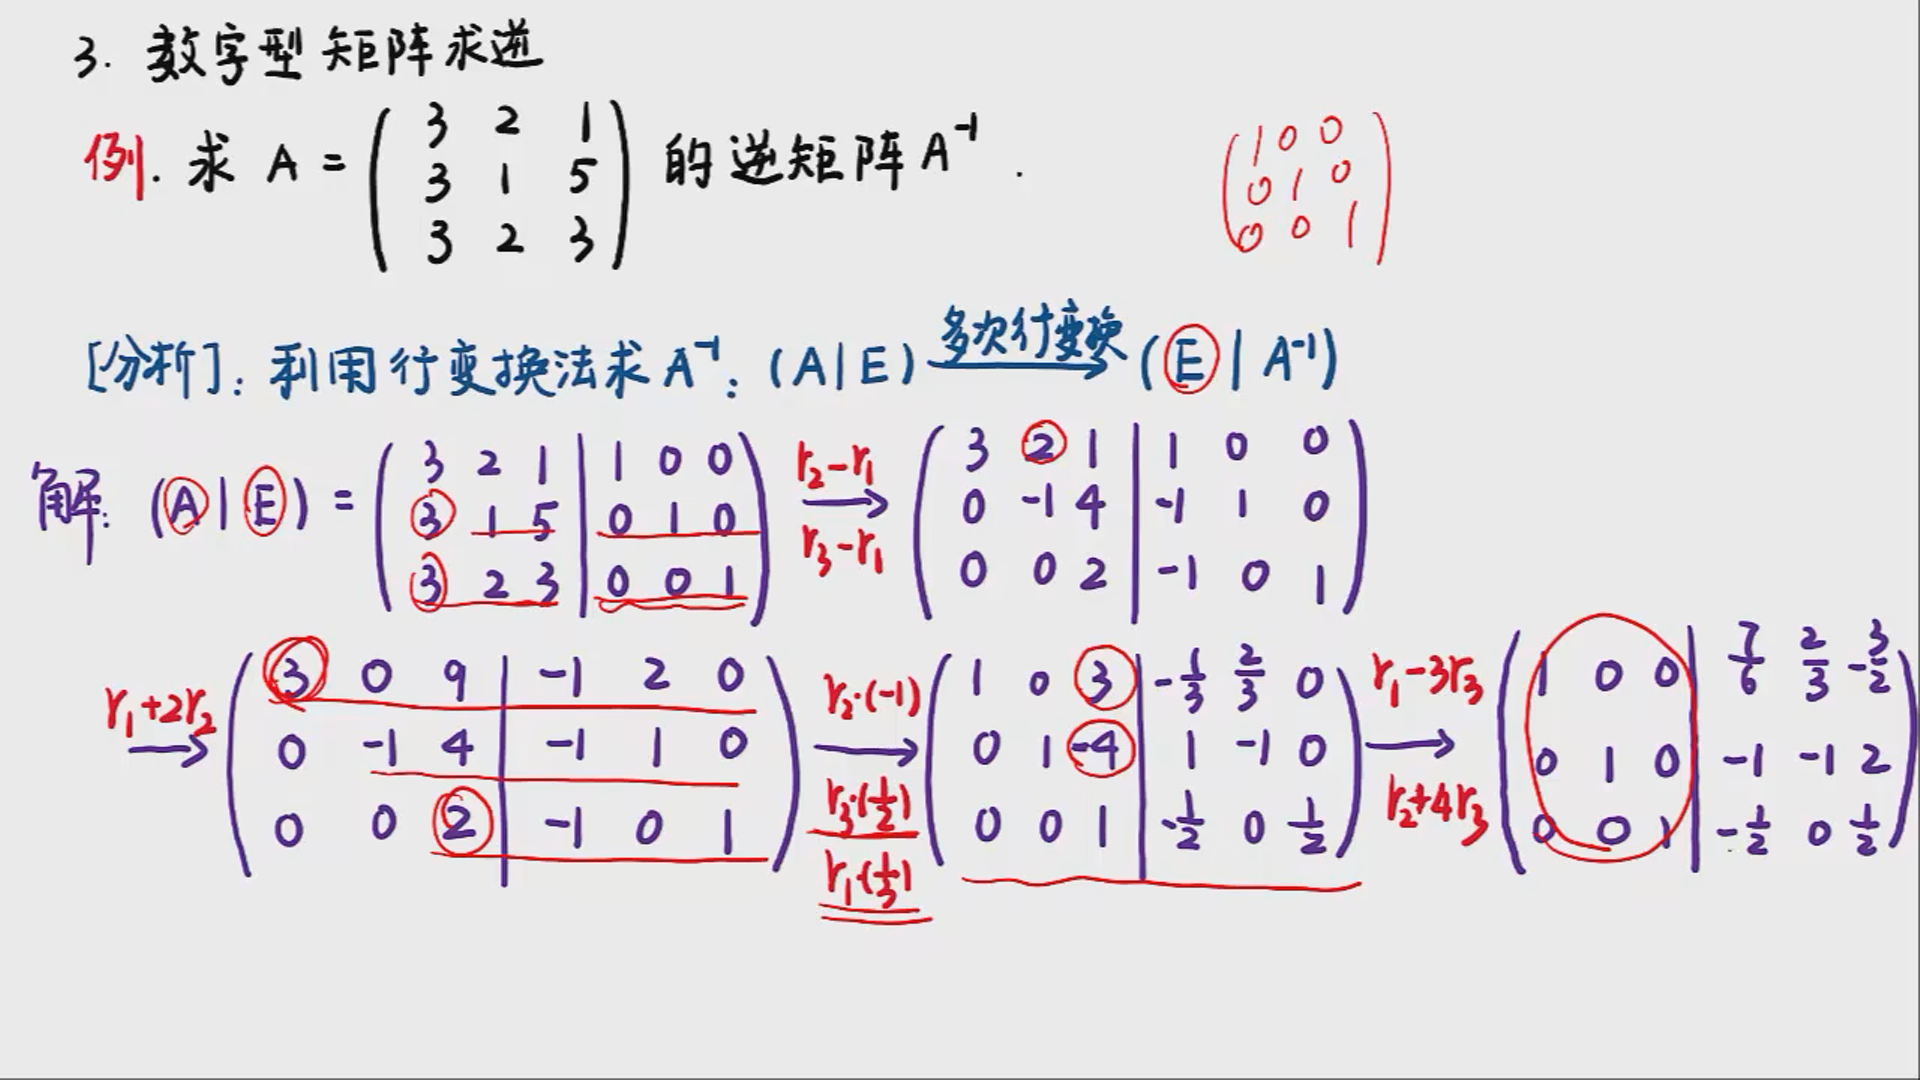 3. 数字型矩阵求逆
例. 求 A = ( 3 2 1 ; 3 1 5 ; 3 2 3 ) 的逆矩阵 A⁻¹ .
( 1 0 0 ; 0 1 0 ; 0 0 1 )
[分析]: 利用行变换法求 A⁻¹: (A|E) 多次行变换→ (E|A⁻¹)
解: (A|E) = ( 3 2 1 | 1 0 0 ; 3 1 5 | 0 1 0 ; 3 2 3 | 0 0 1 ) r₂-r₁ → r₃-r₁ ( 3 2 1 | 1 0 0 ; 0 -1 4 | -1 1 0 ; 0 0 2 | -1 0 1 )
r₁+2r₂ → ( 3 0 9 | -1 2 0 ; 0 -1 4 | -1 1 0 ; 0 0 2 | -1 0 1 ) r₂·(-1) → r₃·(1/2) r₁·(1/3) ( 1 0 3 | -1/3 2/3 0 ; 0 1 -4 | 1 -1 0 ; 0 0 1 | -1/2 0 1/2 ) r₁-3r₃ → r₂+4r₃ ( 1 0 0 | 7/6 2/3 -3/2 ; 0 1 0 | -1 -1 2 ; 0 0 1 | -1/2 0 1/2 )